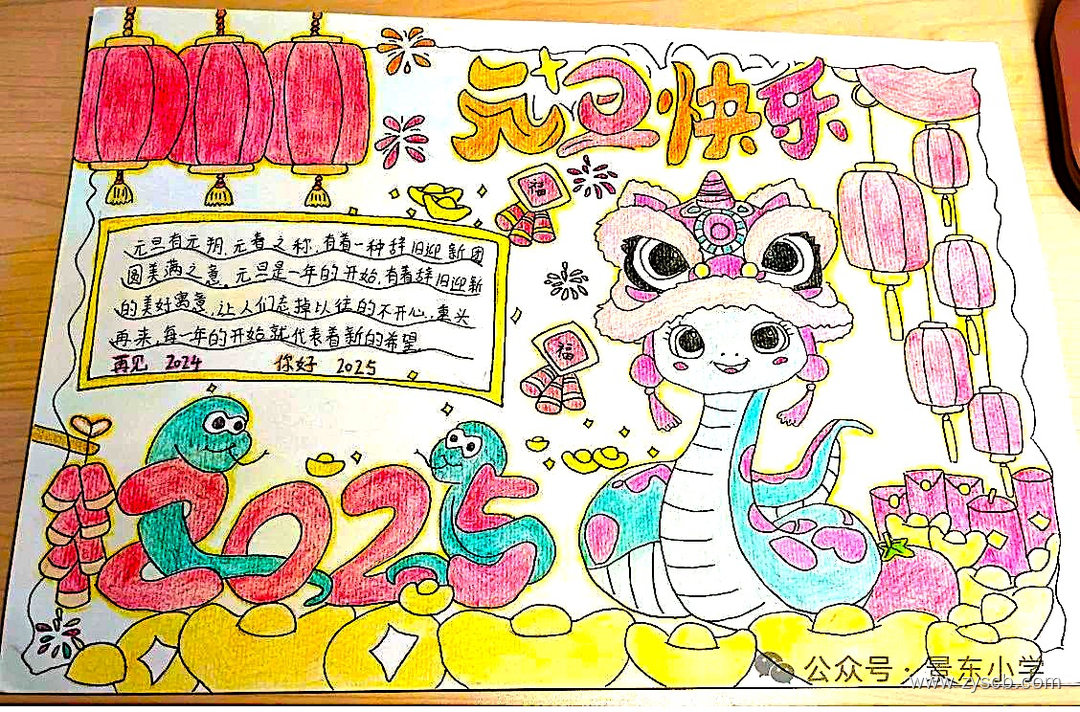 元旦快乐
福
元旦有元朔,元春之称,有着一种辞旧迎新团
圆美满之意,元旦是一年的开始,有着辞旧迎新
的美好寓意,让人们忘掉以往的不开心,重头
再来,每一年的开始就代表着新的希望
再见 2024 你好 2025
福
2025
公众号·景东小学
www.zyscb.com